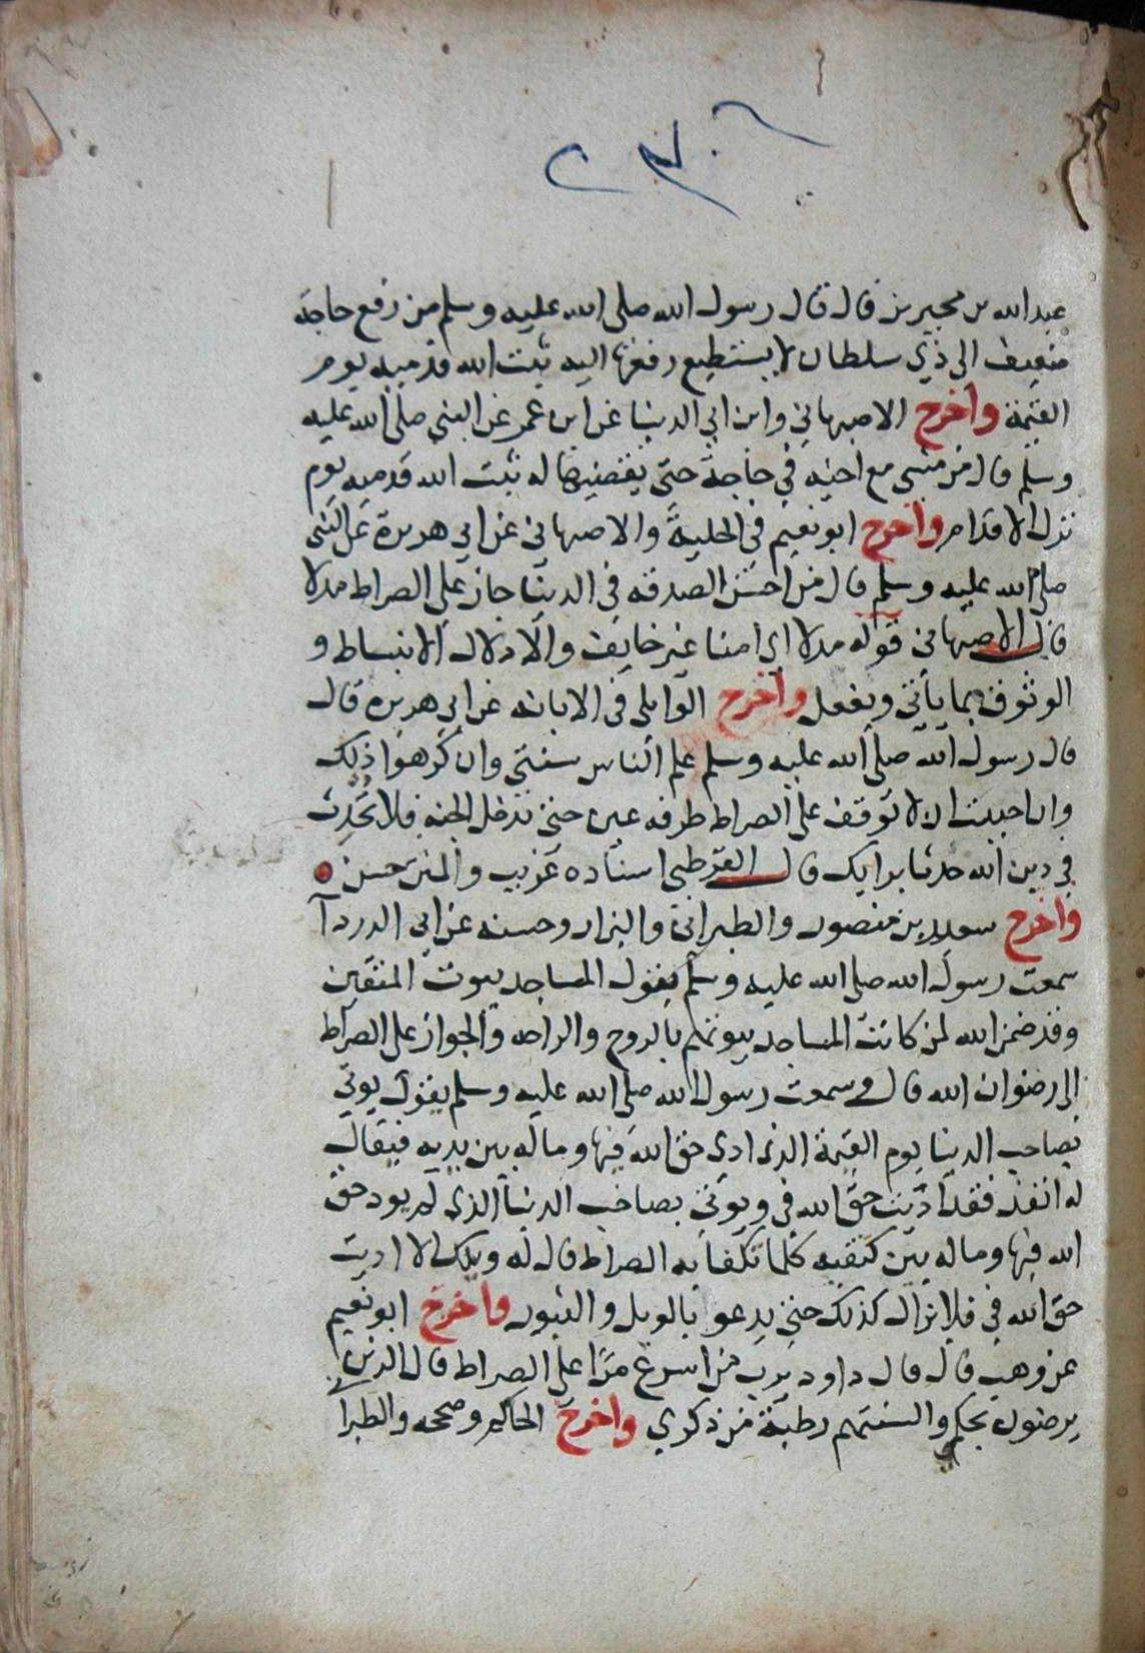 عبد الله بن محيريز قال قال رسول الله صلى الله عليه وسلم من رفع حاجة
ضعيف الى ذي سلطان لا يستطيع رفعها اليه ثبت الله قدميه يوم
القيمة واخرج الاصبهاني وابن ابي الدنيا عن ابن عمر عن النبي صلى الله عليه
وسلم قال من مشى مع اخيه في حاجة حتى يقضيها له ثبت الله قدميه يوم
تزل الاقدام واخرج ابو نعيم في الحلية والاصبهاني عن ابي هريرة عن النبي
صلى الله عليه وسلم قال من احسن الصدقة في الدنيا جاز على الصراط مدلا
قال الاصبهاني قوله مدلا اي امنا غير خايف والادلال الانبساط و
الوثوق بما ياتي ويفعل واخرج الوايلي في الابانه عن ابي هريره قال
قال رسول الله صلى الله عليه وسلم علم الناس سنتي وان كرهوا ذلك
وان احببت ان لا توقف على الصراط طرفه عين حتى تدخل الجنه فلا تحدث
في دين الله حدثا برايك قال القرطبي اسناده غريب والمتن حسن
واخرج سعيد بن منصور والطبراني والبزار وحسنه عن ابي الدردآ
سمعت رسول الله صلى الله عليه وسلم يقول المساجد بيوت المتقين
وقد ضمن الله لمن كانت المساجد بيوتهم بالروح والراحه والجواز على الصراط
الى رضوان الله قال وسمعت رسول الله صلى الله عليه وسلم يقول يوتى
بصاحب الدنيا يوم القيمة الذي ادى حق الله فيها وماله بين يديه فيقال
له انفذ فقد اديت حق الله في ويوتى بصاحب الدنيا الذي لم يود حق
الله فيها وماله بين كتفيه كلما تكفا به الصراط قال له ويلك الا اديت
حق الله في فلا يزال كذلك حتى يدعو بالويل والثبور واخرج ابو نعيم
عن وهب قال قال داود يرب من اسرع مرا على الصراط قال الذين
يرضون بحكمي والسنتهم رطبة من ذكري واخرج الحاكم وصححه والطبرا